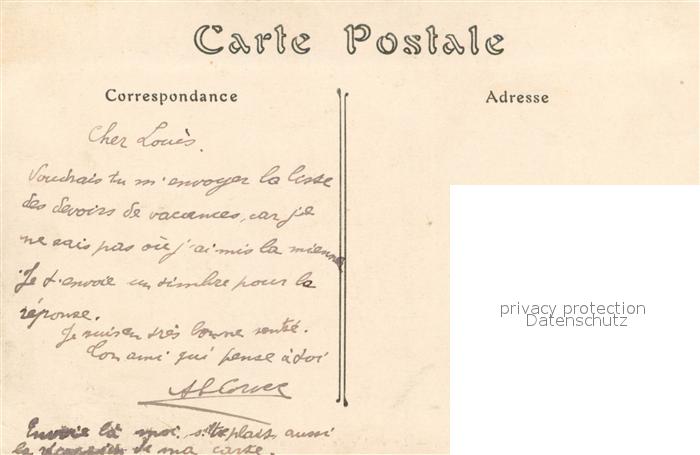 Carte Postale
Correspondance
Adresse
Cher Louis.
Voudrais tu m'envoyer la liste
des devoirs de vacances, car je
ne sais pas où j'ai mis la mienne
Je t'envoie un timbre pour la
réponse.
Je suis en très bonne santé.
Ton ami qui pense à toi
Envoie la moi. s'il te plait aussi
de ma carte.
privacy protection
Datenschutz